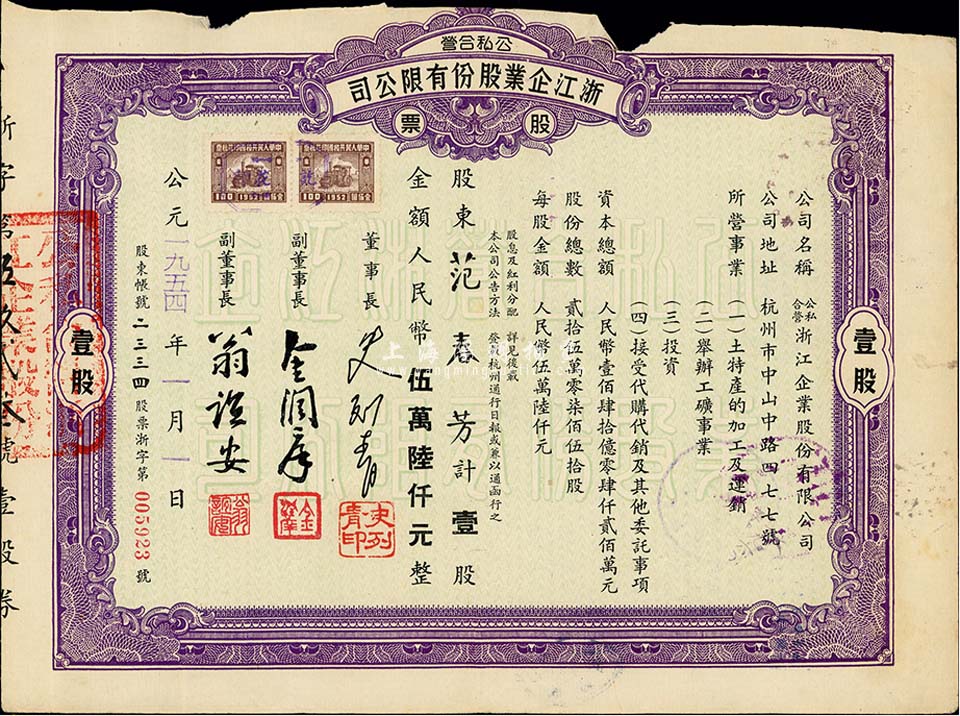 公私合營
浙江企業股份有限公司
股票
公司名稱 公私合營浙江企業股份有限公司
公司地址 杭州市中山中路四七七號
所營事業 (一)土特產的加工及運銷
(二)舉辦工礦事業
(三)投資
(四)接受代購代銷及其他委託事項
資本總額 人民幣壹佰肆拾億零肆仟貳佰萬元
股份總數 貳拾伍萬零柒佰伍拾股
每股金額 人民幣伍萬陸仟元
股息及紅利分配 詳見後載
本公司公告方法 登載杭州通行日報或兼以通函行之
股東范春芳計壹股
金額人民幣伍萬陸仟元整
董事長 史列青
史列青印
副董事長 金潤庠
副董事長
公元一九五四年一月一日
股東帳號二三三四 股票浙字第005923號
壹股
壹股
中華人民共和國印花稅票
100 1952
中華人民共和國印花稅票
100 1952
浙字第伍玖貳叁號壹股券